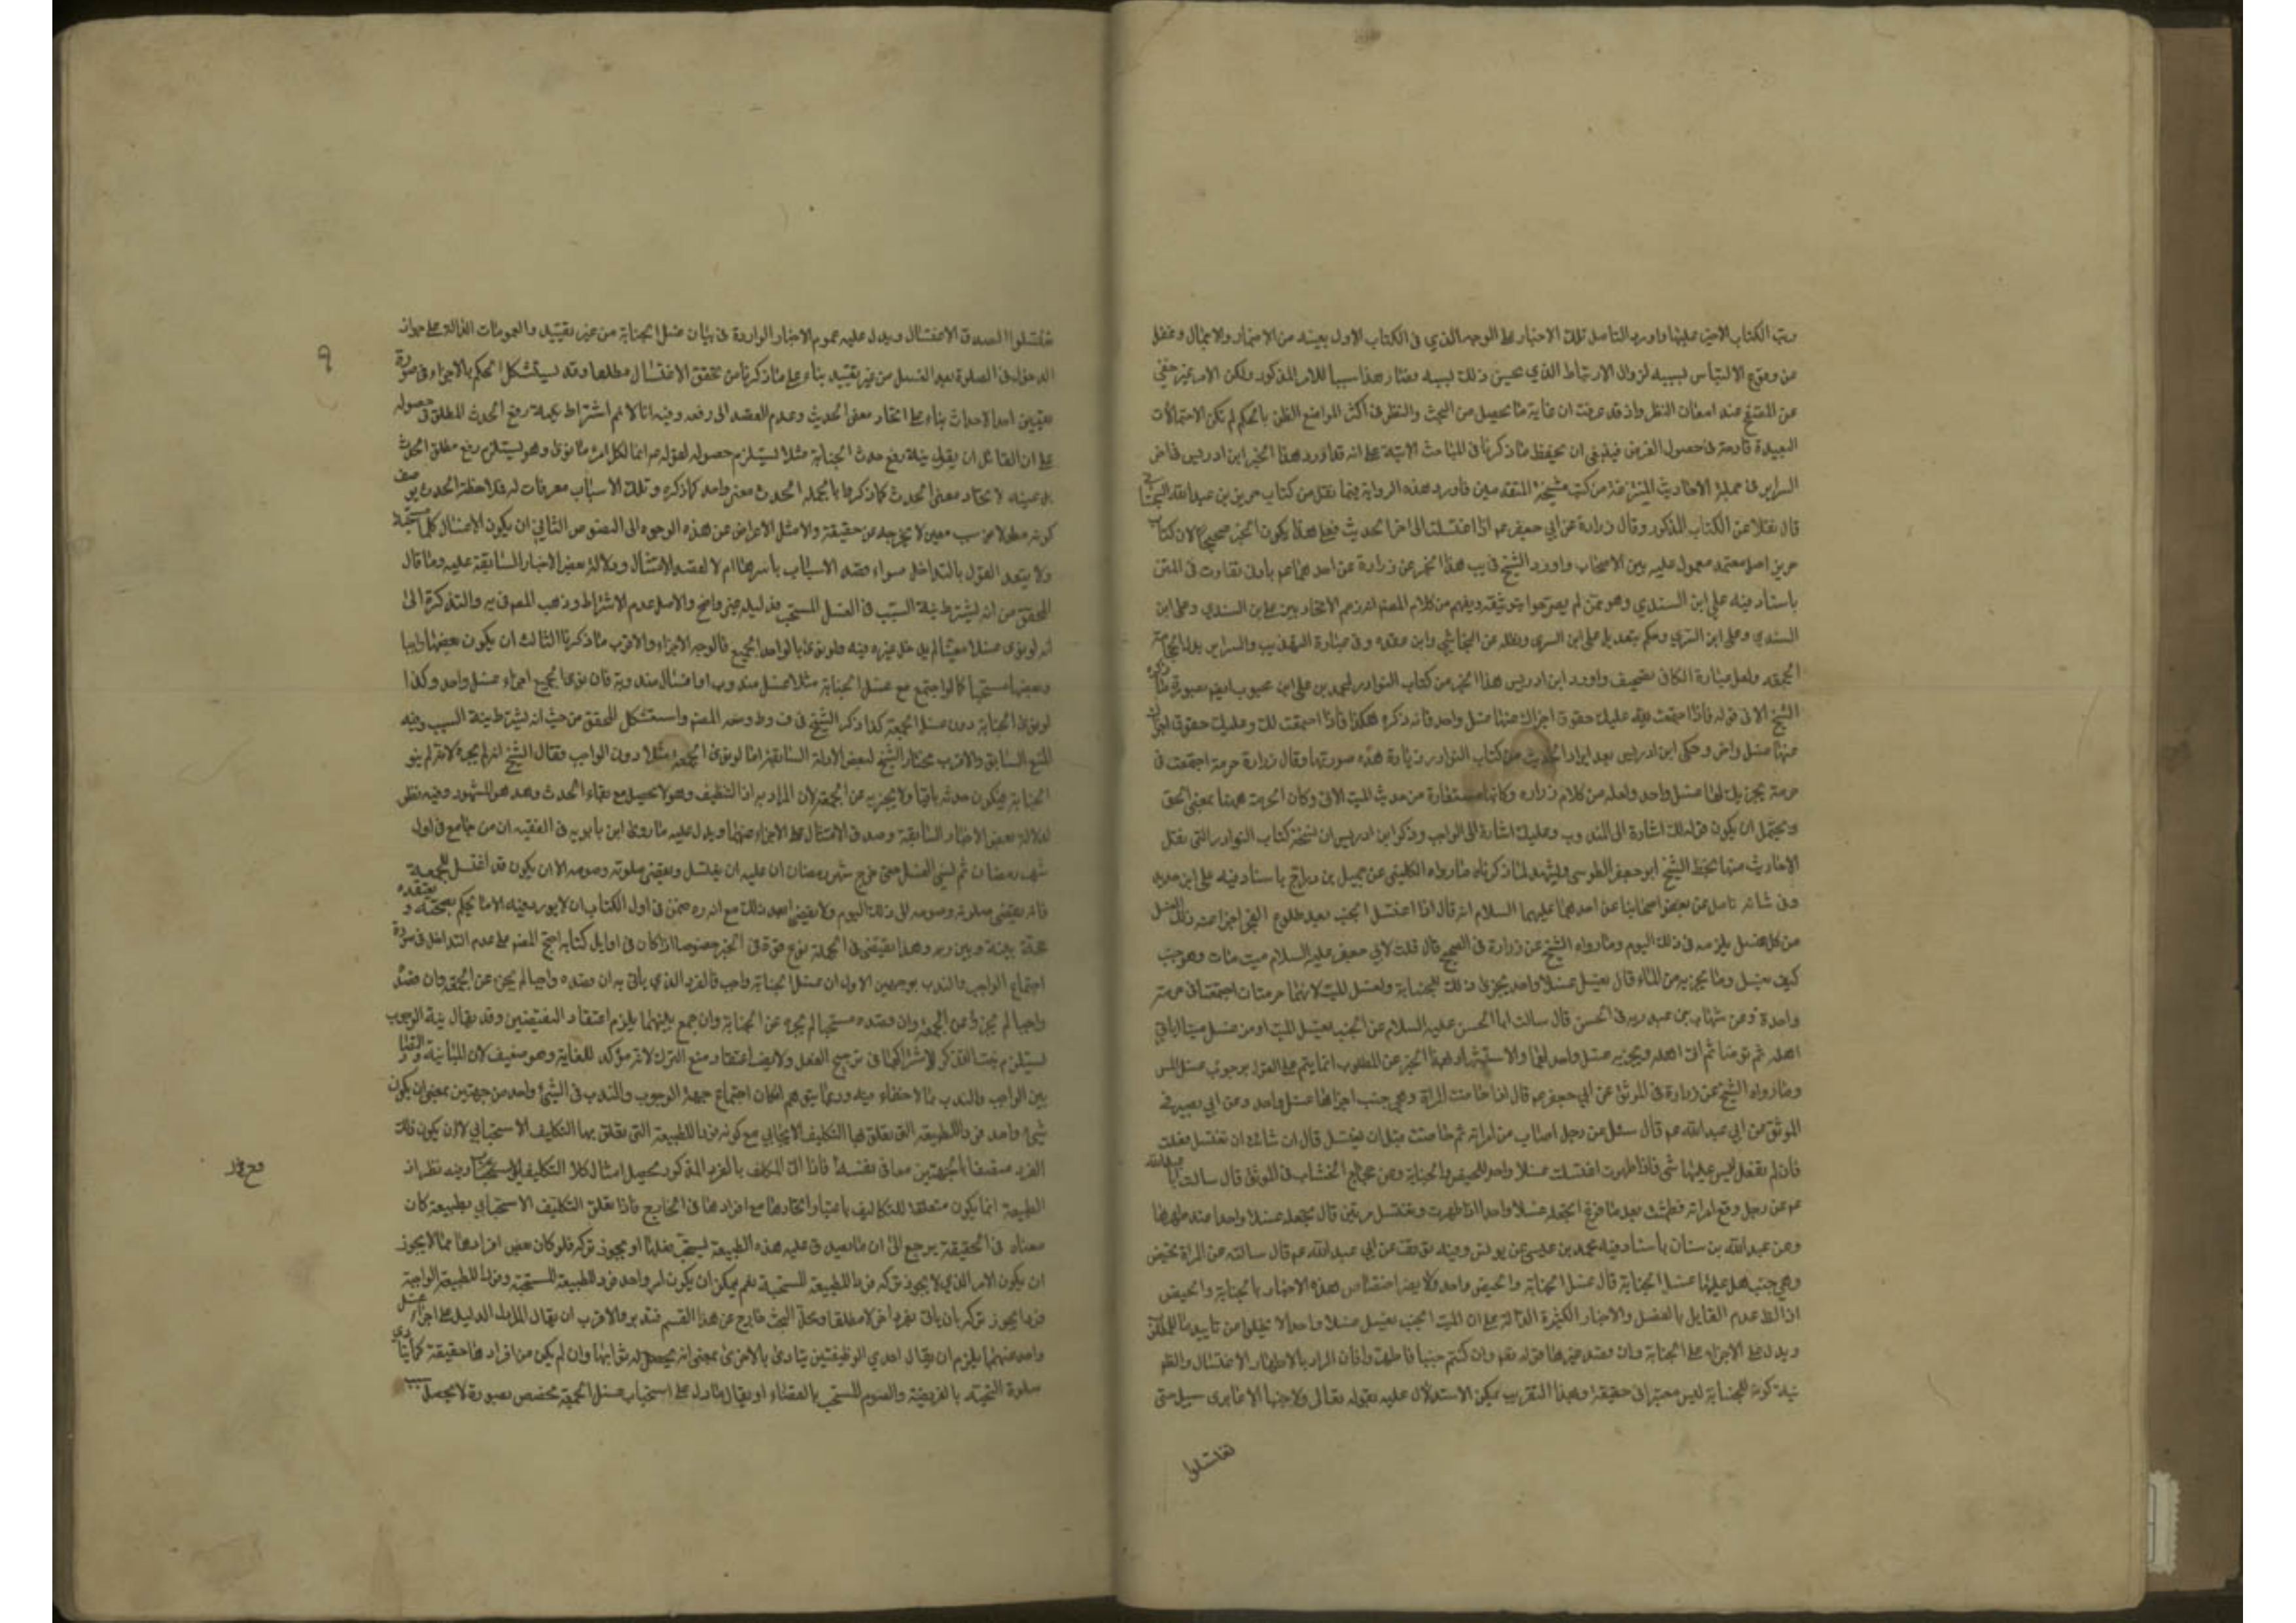 ورتب الكتاب الاخير عليها واورد التامل تلك الاخبار على الوجه الذي في الكتاب الاول بعينه من الاضمار والاجمال وغفل
من وقوع الالتباس لسببه لزوال الارتباط الذي حسن ذلك لسببه وصار هذا سببا للامر المذكور ولكن الامر غير خفي
عن المتصفح عند امعان النظر واذ قد عرفت ان غاية ما يحصل من البحث والنظر في اكثر المواضع الظن بالحكم لم تكن الاحتمالات
البعيدة قادحة في حصول الغرض فينبغي ان يحفظ ما ذكرنا في المباحث الاتية على انه قد اورد هذا الخبر ابن ادريس في اخر
السراير في جملة الاحاديث المنتزعة من كتب مشيخة المتقدمين فاورد هذه الرواية فيما نقل من كتاب حريز بن عبدالله السجستاني
قال نقلا عن الكتاب المذكور وقال زرارة عن ابي جعفر عم اذا اغتسلت الى اخر الحديث فعلى هذا يكون الخبر صحيحا لان كتاب
حريز اصل معتمد معمول عليه بين الاصحاب واورد الشيخ في يب هذا الخبر عن زرارة عن احدهما عم بادنى تفاوت في المتن
باسناد فيه علي ابن السندي وهو ممن لم يصرحوا بتوثيقه ويفهم من كلام المصنف انه زعم الاتحاد بين علي بن السندي وعلي ابن
السندي وعلى ابن السري وحكم بتعديل علي ابن السري ونقله عن النجاشي وابن عقده وفي عبارة التهذيب والسراير بدل الحجامة
الجمعه ولعل عبارة الكافي تصحيف واورد ابن ادريس هذا الخبر من كتاب النوادر لمحمد بن علي ابن محبوب ايضا بصورة ما ذكره
الشيخ الا في قوله فاذا اجتمعت لله عليك حقوق اجزاك عنها غسل واحد فانه ذكره هكذا فاذا اجتمعت لك وعليك حقوق اجزاك
عنها غسل واحد وحكى ابن ادريس بعد ايراد الحديث من كتاب النوادر زيادة هذه صورتها وقال زرارة حرمة اجتمعت في
حرمة يجزيك لها غسل واحد ولعله من كلام زراره وكانها مستفادة من حديث الميت الاتي وكان الحرمة ههنا بمعنى الحق
ويحتمل ان يكون قوله لك اشارة الى المندوب وعليك اشارة الى الواجب وذكر ابن ادريس ان نسخة كتاب النوادر التي نقل
الاحاديث منها بخط الشيخ ابو جعفر الطوسي وليشهد لما ذكرناه ما رواه الكليني عن جميل بن دراج باسناد فيه علي ابن حديد
وفي شانه تامل عن بعض اصحابنا عن احدهما عليهما السلام انه قال اذا اغتسل الجنب بعد طلوع الفجر اجزا عنه ذلك الغسل
من كل غسل يلزمه في ذلك اليوم وما رواه الشيخ عن زرارة في الصحيح قال قلت لابي جعفر عليه السلام ميت مات وهو جنب
كيف يغسل وما يجزيه من الماء قال يغسل غسلا واحد يجزى ذلك للجنابة ولغسل الميت لانهما حرمتان اجتمعتا في حرمة
واحدة وعن شهاب بن عبد ربه في الحسن قال سالت ابا الحسن عليه السلام عن الجنب يغسل الميت او من غسل ميتا اياتي
اهله ثم توضا ثم اتى اهله ويجزيه غسل واحد لهما والاستشهاد بهذا الخبر عن المطلوب انما يتم على القول بوجوب غسل المس
وما رواه الشيخ عن زرارة في الموثق عن ابي جعفر عم قال اذا حاضت المراة وهي جنب اجزاها غسل واحد وعن ابي بصير في
الموثق عن ابي عبد الله عم قال سئل عن رجل اصاب من امراته ثم حاضت قبل ان تغتسل قال ان شائت ان تغتسل فعلت
فان لم تفعل ليس عليها شئ فاذا طهرت اغتسلت غسلا واحد للحيض والجنابة وعن حجاج الخشاب في الموثق قال سالت ابا عبدالله
عم عن رجل وقع امراته فطمثت بعد ما فرغ اتجعله غسلا واحدا اذا طهرت وتغتسل مرتين قال تجعله غسلا واحدا عند طهرها
وعن عبدالله بن سنان باسناد فيه محمد بن عيسى عن يونس وفيه توقف عن ابي عبدالله عم قال سالته عن المراة تحيض
وهي جنب هل عليها غسل الجنابة قال غسل الجنابة والحيض واحد ولا يضر اختصاص هذه الاخبار بالجنابة والحيض
اذ الظ عدم القايل بالفصل والاخبار الكثيرة الدالة على ان الميت الجنب يغسل غسلا واحدا لا تخلوا من تاييد ما للمطلق
ويدل على الاجزاء على الجنابة وان قصد غيرها قوله تعم وان كنتم جنبا فاطهروا فان المراد بالاطهار الاغتسال والظم
نية كونه للجنابة ليس معتبرا في حقيقة وبهذا التقريب يمكن الاستدلال عليه بقوله تعالى ولا جنبا الا عابري سبيل حتى
تغتسلوا
٩
تغتسلوا لصدق الاغتسال ويدل عليه عموم الاخبار الواردة في بيان غسل الجنابة من غير تقييد والعمومات الدالة على جواز
الدخول في الصلوة بعد الغسل من غير تقييد بناء على ما ذكرنا من تحقق الاغتسال مطلقا وقد يستشكل الحكم بالاجزاء في صورة
تعيين احد الاحداث بناء على اتحاد معنى الحديث وعدم القصد الى رفعه وفيه انا لا نم اشتراط نية رفع الحدث المطلق في حصوله
على ان القائل ان يقول نية رفع حدث الجنابة مثلا يستلزم حصوله لقوله عم انما لكل امرء ما نوى وهو ليستلزم رفع مطلق الحدث
لا تحاد معنى الحدث كما ذكر بالجمله الحدث معنى واحد كما ذكره وتلك الاسباب معرفات له فلاحظة الحدث بوصف
كونه معلولا من سبب معين لا يخرجه عن حقيقة والامثل الاعراض عن هذه الوجوه الى النصوص الثاني ان يكون الاغتسال كلها مستحبة
ولا يبعد القول بالتداخل سواء قصد الاسباب باسرها ام لا لصدق الامتثال ودلالة بعض الاخبار السابقة عليه وما قال
المحقق من انه يشترط نية السبب في الغسل المستحب فدليله غير واضح والاصل عدم الاشتراط وذهب المصم في ير والتذكرة الى
انه لو نوى غسلا معينا لم يدخل غيره فيه ولو نوى بالواحد الجميع فالوجه الاجزاء والاقرب ما ذكرنا الثالث ان يكون بعضها واجبا
وبعضها مستحبا كما لو اجتمع مع غسل الجنابة مثلا غسل مندوب او اغسال مندوبة فان نوى الجميع اجزاء غسل واحد وكذا
لو نوى الجنابة دون غسل الجمعة كذا ذكر الشيخ في ف وط ومعه المصم واستشكل المحقق من حيث انه يشترط نية السبب وفيه
المنع السابق والاقرب مختار الشيخ لبعض الادلة السابقة اما لو نوى الجمعة مثلا دون الواجب وقال الشيخ انه لم يجزه لانه لم ينو
الجنابة فيكون حدثه باقيا ولا يجزيه عن الجمعة لان المراد به التنظيف وهو لا يحصل مع بقاء الحدث وهذا هو المشهور وفيه نظر
لدلالة بعض الاخبار السابقة وصدق الامتثال على الاجزاء عنهما ويدل عليه ما روى ابن بابويه في الفقيه ان من جامع في اول
شهر رمضان ثم نسى الغسل حتى خرج شهر رمضان ان عليه ان يغتسل ويقضى صلوته وصومه الا ان يكون قد اغتسل للجمعة
فانه يقضى صلوته وصومه الى ذلك اليوم ولا يقضى بعد ذلك مع انه ره ضمن في اول الكتاب ان لا يورد فيه الا ما يحكم بصحته ويعتقده
حجة بينه وبين ربه وهذا يقتضى في الجملة نوع قوة في الخبر خصوصا اذا كان في اوايل كتابه احتج المصم على عدم التداخل في صورة
اجتماع الواجب والندب بوجهين الاول ان غسل الجنابة واجب فالفرد الذي يأتى به ان قصده واجبا لم يجز عن الجمعه وان قصد
واجبا لم يجز عن الجمعة وان قصده مستحبا لم يجزه عن الجنابة وان جمع بينهما يلزم اعتقاد النقيضين وقد يقال نية الوجوب
يستلزم نية الندب لاشتراكهما في ترجيح الفعل ولا يضر اعتقاد منع الترك لانه مؤكد للغاية وهو ضعيف لان المباينة والتضاد
بين الواجب والندب مما لا خفاء فيه وربما يتوهم امكان اجتماع جهة الوجوب والندب في الشئ واحد من جهتين بمعنى ان يكون
شئ واحد فردا للطبيعة التي تعلق بها التكليف الايجابي مع كونه فردا للطبيعة التي تعلق بها التكليف الاستحبابي لان يكون ذلك
الفرد متصفا بالجهتين معا في نفسه فاذا اتى المكلف بالفرد المذكور يحصل امتثال كلا التكليف الاستحبابي وفيه نظر اذ
الطبيعة انما يكون متعلقا للتكاليف باعتبار اتحادها مع افرادها في الخارج فاذا تعلق التكليف الاستحبابي بطبيعة كان
معناه في الحقيقة يرجع الى ان ما يصدق عليه هذه الطبيعة يستحب فعلها او يجوز تركه فلو كان بعض افرادها مما لا يجوز
ان يكون الامر الذي لا يجوز تركه فردا للطبيعة المستحبة نعم يمكن ان يكون امر واحد فرد للطبيعة المستحبة وفردا للطبيعة الواجبة
فردا يجوز تركه بان ياتى بفرد اخر لا مطلقا ومحل البحث خارج عن هذا القسم فتدبر والاقرب ان يقال الدليل على اجزاء غسل
واحد عنهما يلزم ان يقال احدي الوظيفتين يتادى بالاخرى بمعنى انه يحصل له ثوابها وان لم يكن من افرادها حقيقة كما يتادى
صلوة التحية بالفريضة والصوم المستحب بالقضاء او يقال ما دل على استحباب غسل الجمعة مختص بصورة لا يحصل سبب